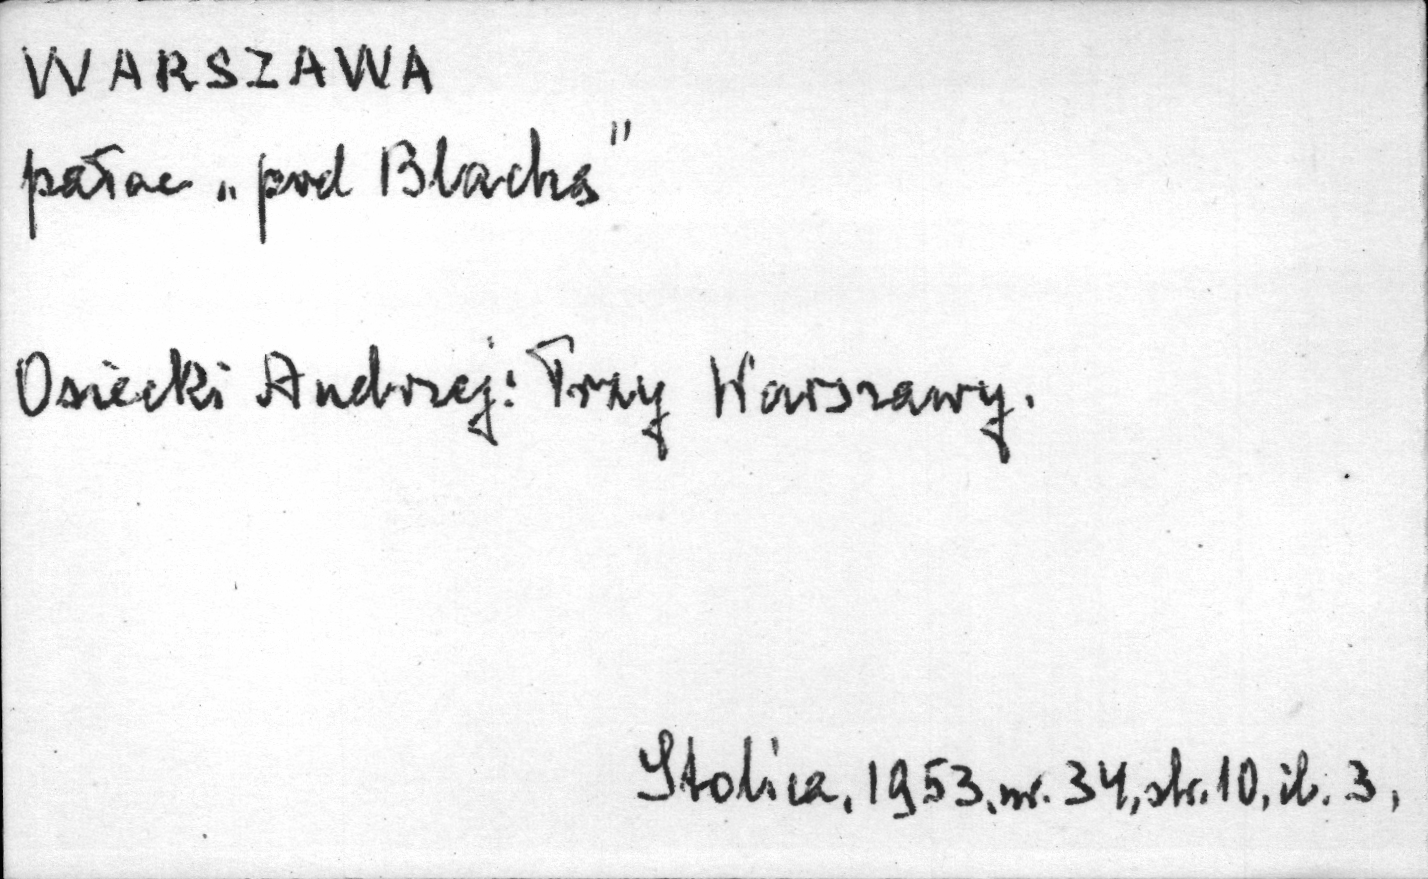 WARSZAWA
pałac „pod Blachą"
Osiecki Andrzej: Trzy Warszawy.
Stolica, 1953, nr. 34, str. 10, il. 3,